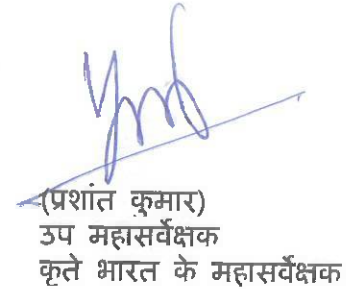 (प्रशांत कुमार)
उप महासर्वेक्षक
कृते भारत के महासर्वेक्षक